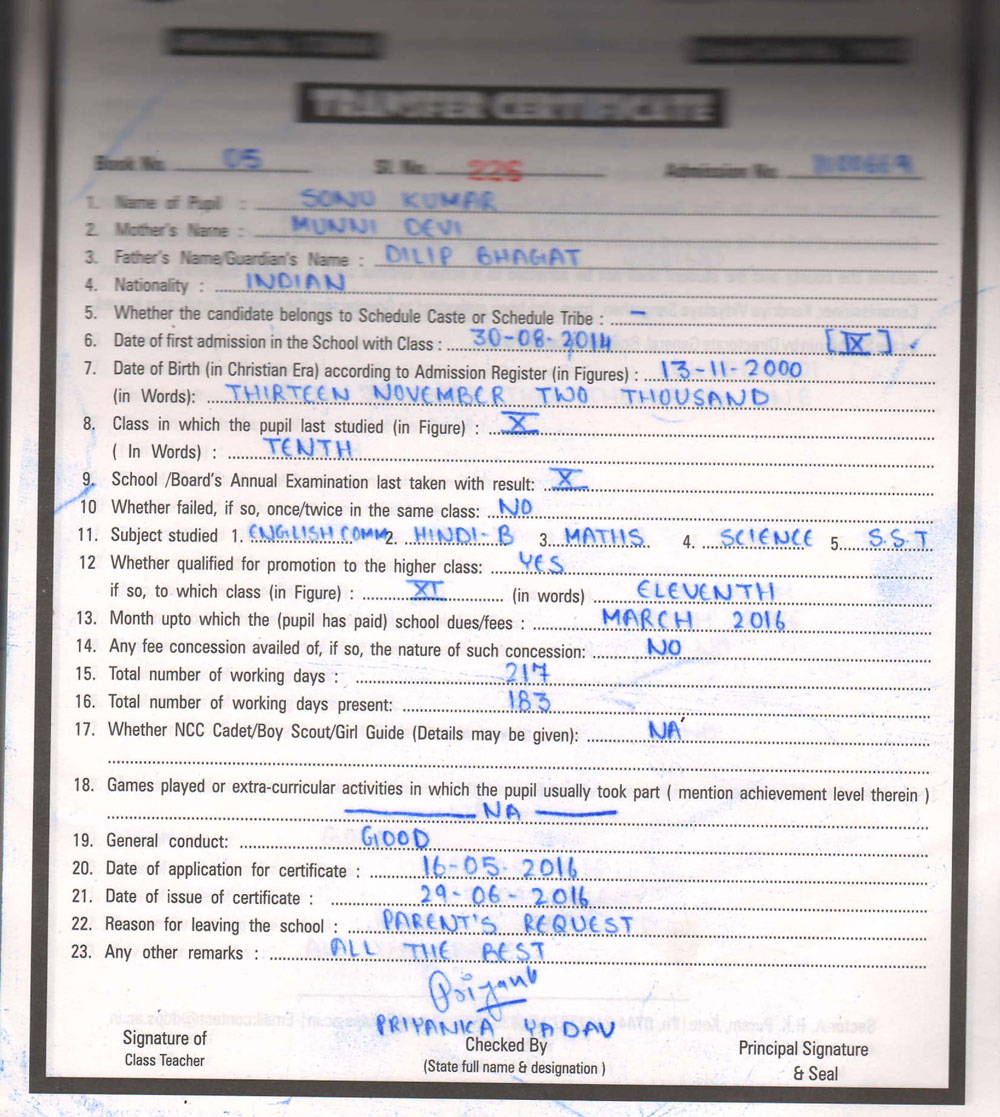 TRANSFER CERTIFICATE
Book No. 05 Sl. No. 226 Admission No.
1. Name of Pupil : SONU KUMAR
2. Mother's Name : MUNNI DEVI
3. Father's Name/Guardian's Name : DILIP BHAGAT
4. Nationality : INDIAN
5. Whether the candidate belongs to Schedule Caste or Schedule Tribe : –
6. Date of first admission in the School with Class : 30-08-2014 [IX]
7. Date of Birth (in Christian Era) according to Admission Register (in Figures) : 13-11-2000
(in Words): THIRTEEN NOVEMBER TWO THOUSAND
8. Class in which the pupil last studied (in Figure) : X
( In Words) : TENTH
9. School /Board's Annual Examination last taken with result: X
10 Whether failed, if so, once/twice in the same class: NO
11. Subject studied 1. ENGLISH COMM 2. HINDI-B 3. MATHS 4. SCIENCE 5. S.S.T
12 Whether qualified for promotion to the higher class: YES
if so, to which class (in Figure) : XI (in words) ELEVENTH
13. Month upto which the (pupil has paid) school dues/fees : MARCH 2016
14. Any fee concession availed of, if so, the nature of such concession: NO
15. Total number of working days : 217
16. Total number of working days present: 183
17. Whether NCC Cadet/Boy Scout/Girl Guide (Details may be given): NA
18. Games played or extra-curricular activities in which the pupil usually took part ( mention achievement level therein )
NA
19. General conduct: GOOD
20. Date of application for certificate : 16-05-2016
21. Date of issue of certificate : 29-06-2016
22. Reason for leaving the school : PARENT'S REQUEST
23. Any other remarks : ALL THE BEST
PRIYANKA YADAV
Signature of
Class Teacher
Checked By
(State full name & designation )
Principal Signature
& Seal